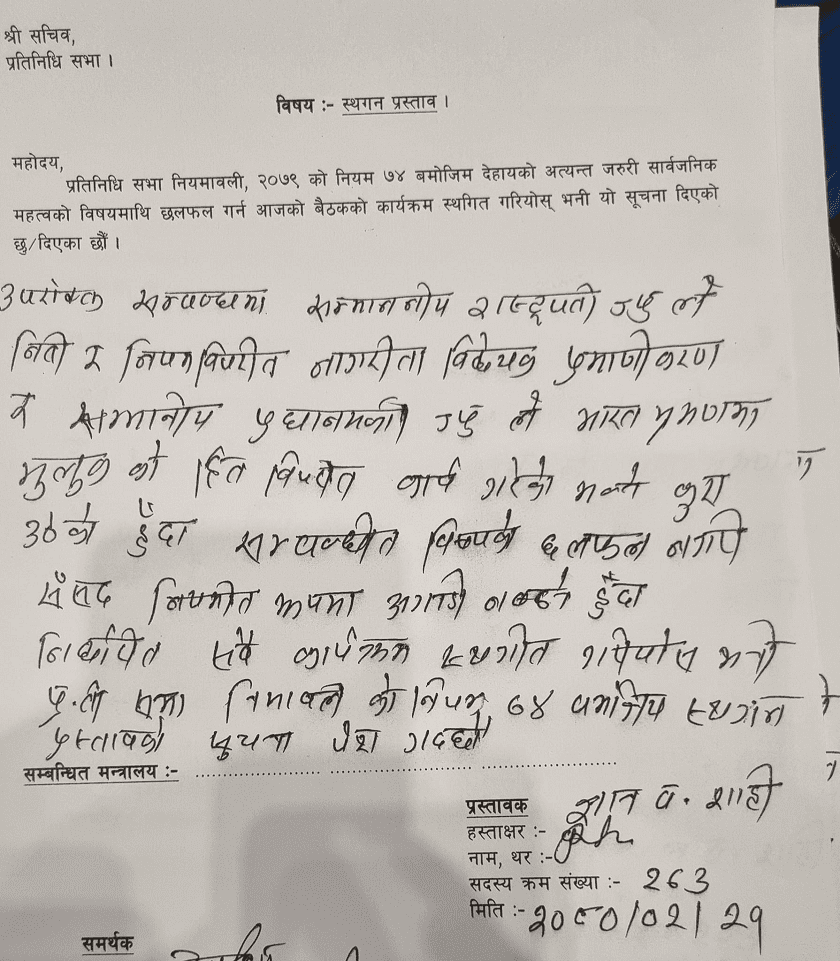 श्री सचिव,
प्रतिनिधि सभा ।
विषय :- स्थगन प्रस्ताव ।
महोदय,
प्रतिनिधि सभा नियमावली, २०७९ को नियम ७४ बमोजिम देहायको अत्यन्त जरुरी सार्वजनिक
महत्वको विषयमाथि छलफल गर्न आजको बैठकको कार्यक्रम स्थगित गरियोस् भनी यो सूचना दिएको
छु/दिएका छौं ।
उपरोक्त सम्वन्धमा सम्माननीय राष्ट्रपती ज्यु लै
निती र नियमविपरीत नागरीता विधेयक प्रमाणीकरण
र सम्मानीय प्रधानमन्त्री ज्यु लै भारत भ्रमणमा
मुलुक को हित विपरीत कार्य गरेको भन्ने कुरा
उठेको हुँदा सम्वन्धीत विषयको छलफल नगरी
सँसद नियमीत रूपमा अगाडी नवढ्ने हुँदा
निर्धारित सवै कार्यक्रम स्थगीत गरियोस भनी
प्र.ती सभा को नियम ७४ वमोजिम स्थगन
प्रस्तावको सुचना पेश गर्दछौ
सम्बन्धित मन्त्रालय :- ........................................................
प्रस्तावक ज्ञान व. शाही
हस्ताक्षर :-
नाम, थर :-
सदस्य क्रम संख्या :- 263
मिति :- २०८०/०२/२१
समर्थक